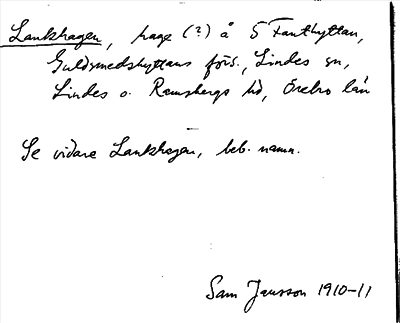 Lankhagen, hage (?) å S Fanthyttan,
Guldsmedshyttans förs., Lindes sn,
Lindes o. Ramsbergs hd, Örebro län
Se vidare Lankhagen, beb. namn.
Sam Jansson 1910-11